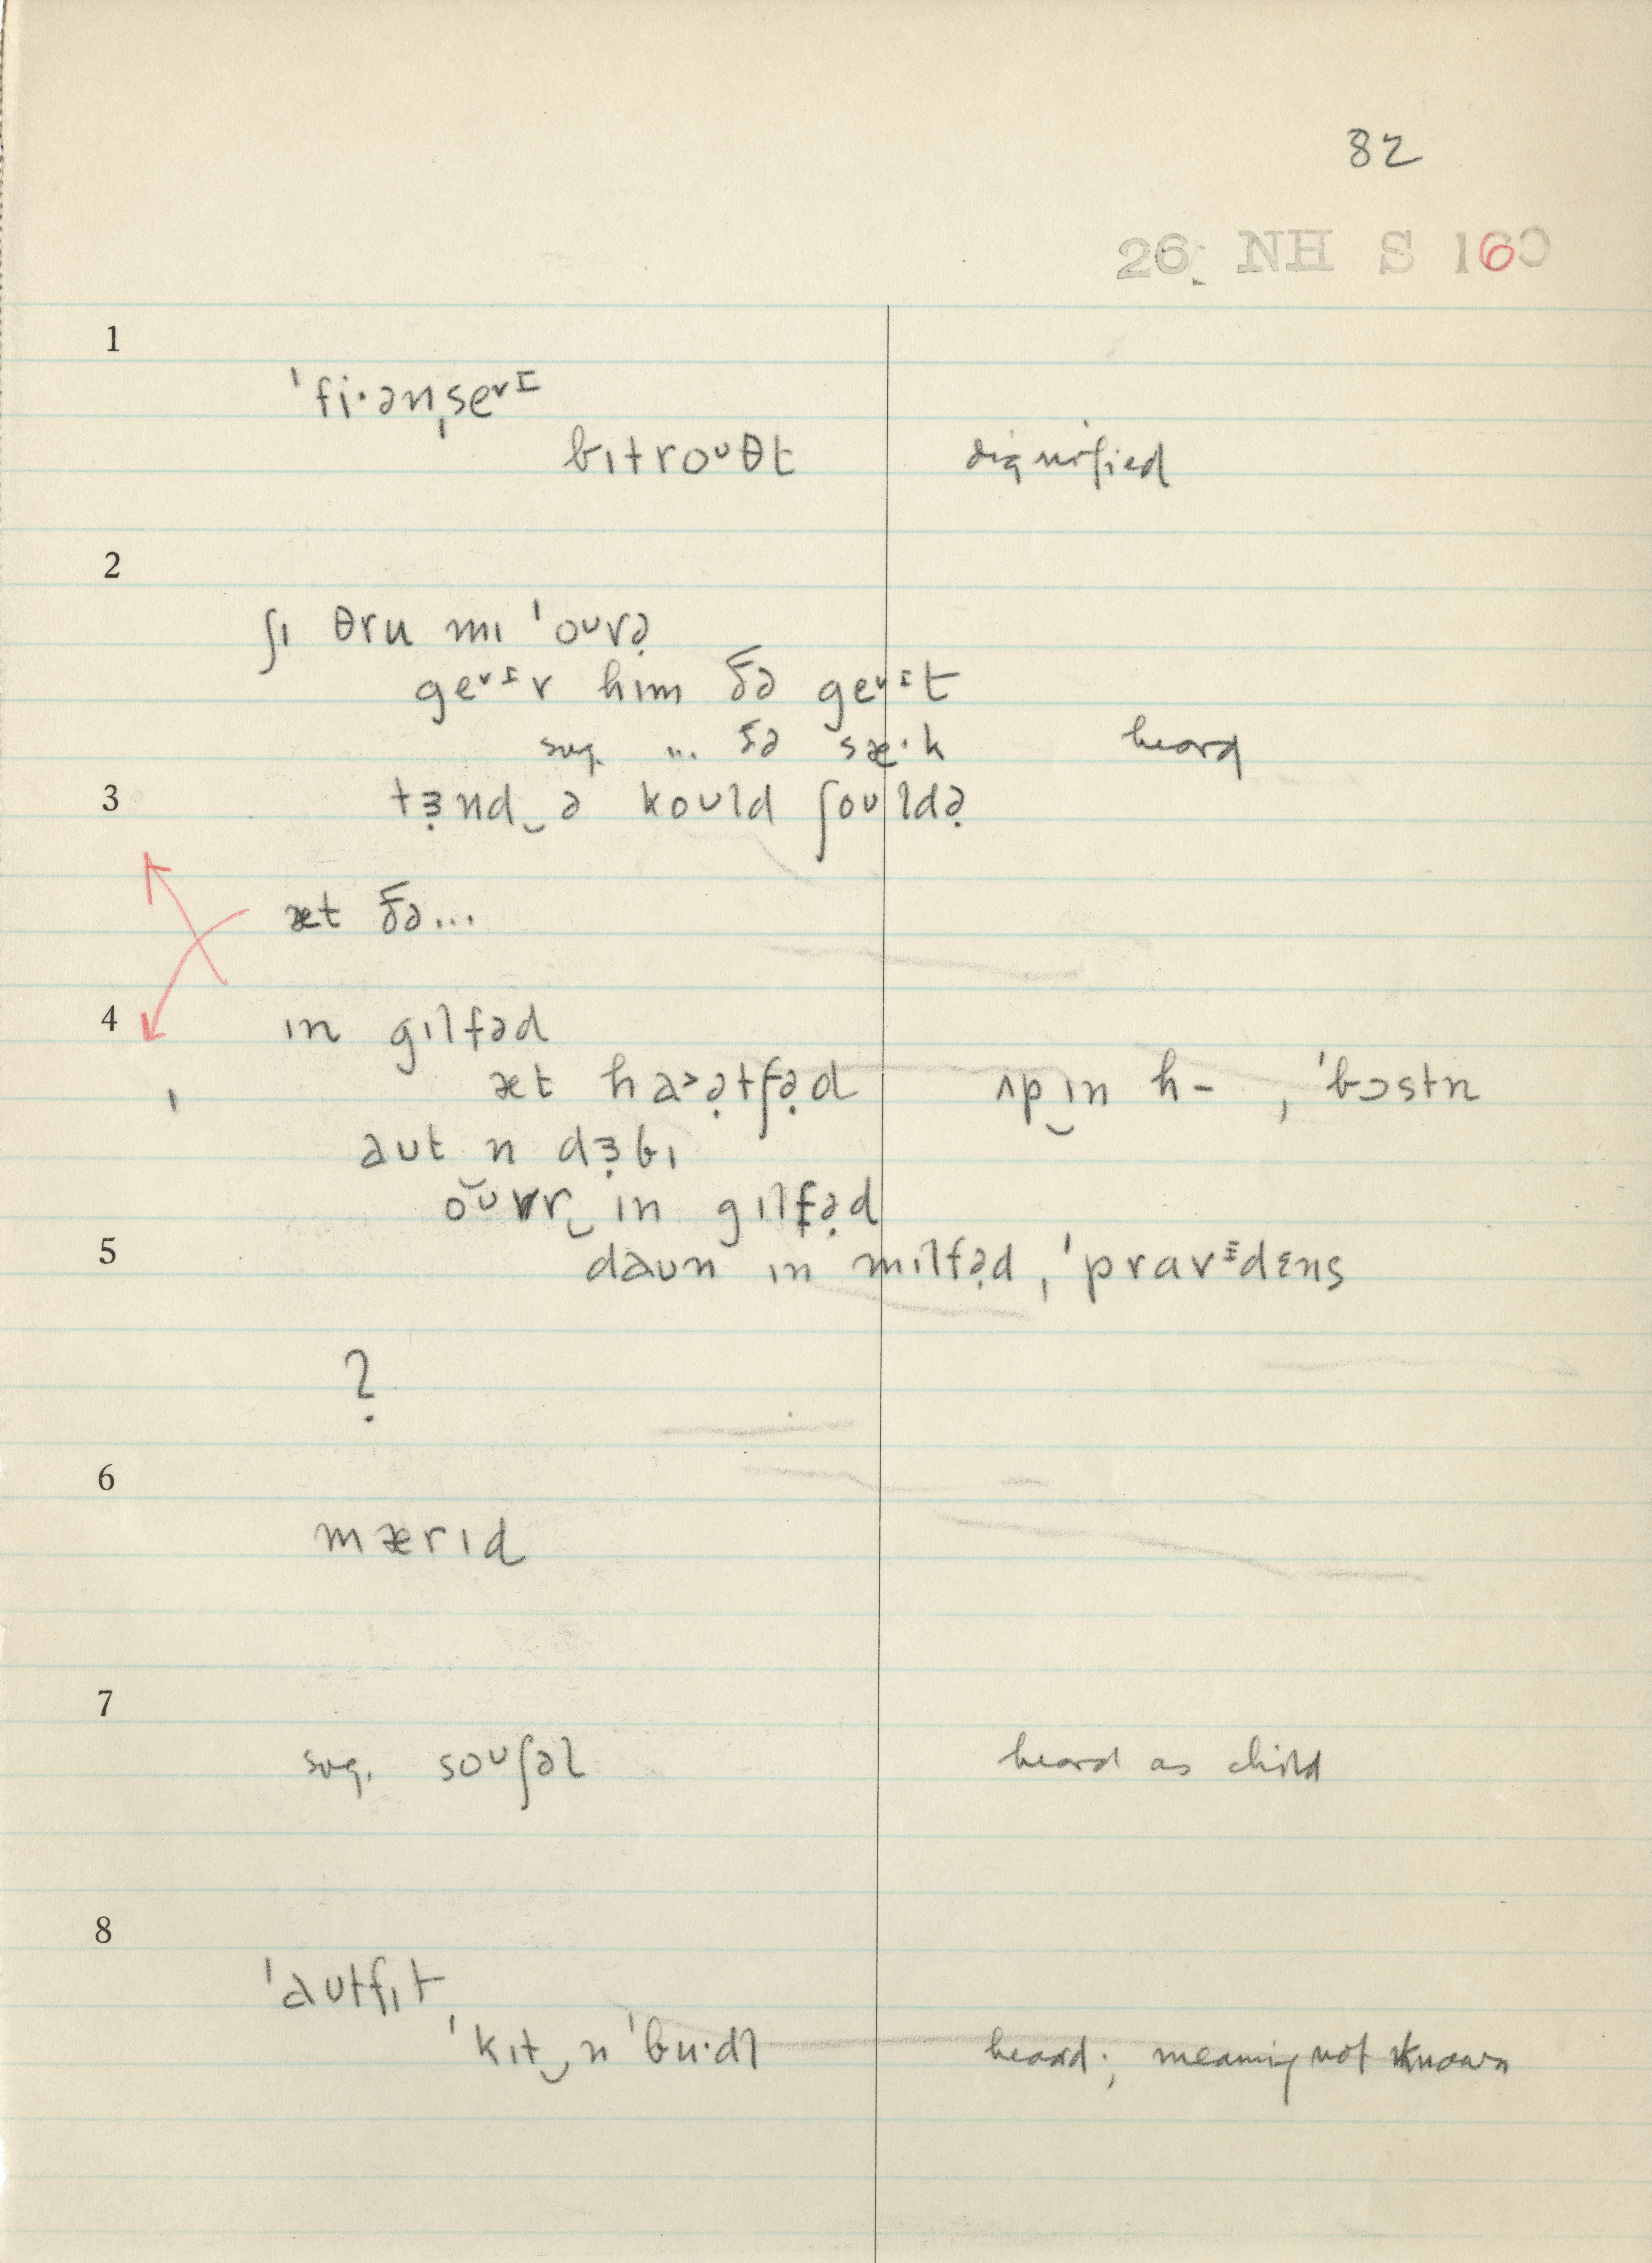 82
26 NH S 160
1
ˈfi·ənˌseᵛɪ
bɪtroᶷθt dignified
2
ʃɪ θru mɪ ˈoᶷvə̣
geᵛɪv hɪm ðə geᵛɪt
sug. ... ðə sæ·k heard
3 tɜ̣nd‿ə koʊld ʃoʊldə̣
æt ðə...
4 ɪn gɪlfəd
æt ha>ə̣tfə̣d ʌp‿ɪn h– , ˈbɔstn
aʊt n dɜ̣bɪ
oᶷvr‿ɪn gɪlfə̣d
5 daʊn ɪn mɪlfə̣d, ˈpravɪdɛns
?
6
mærɪd
7
sug. soᶷʃəl heard as child
8
ˈaʊtfɪt
ˈkɪt‿n ˈbu·dl heard; meaning not known